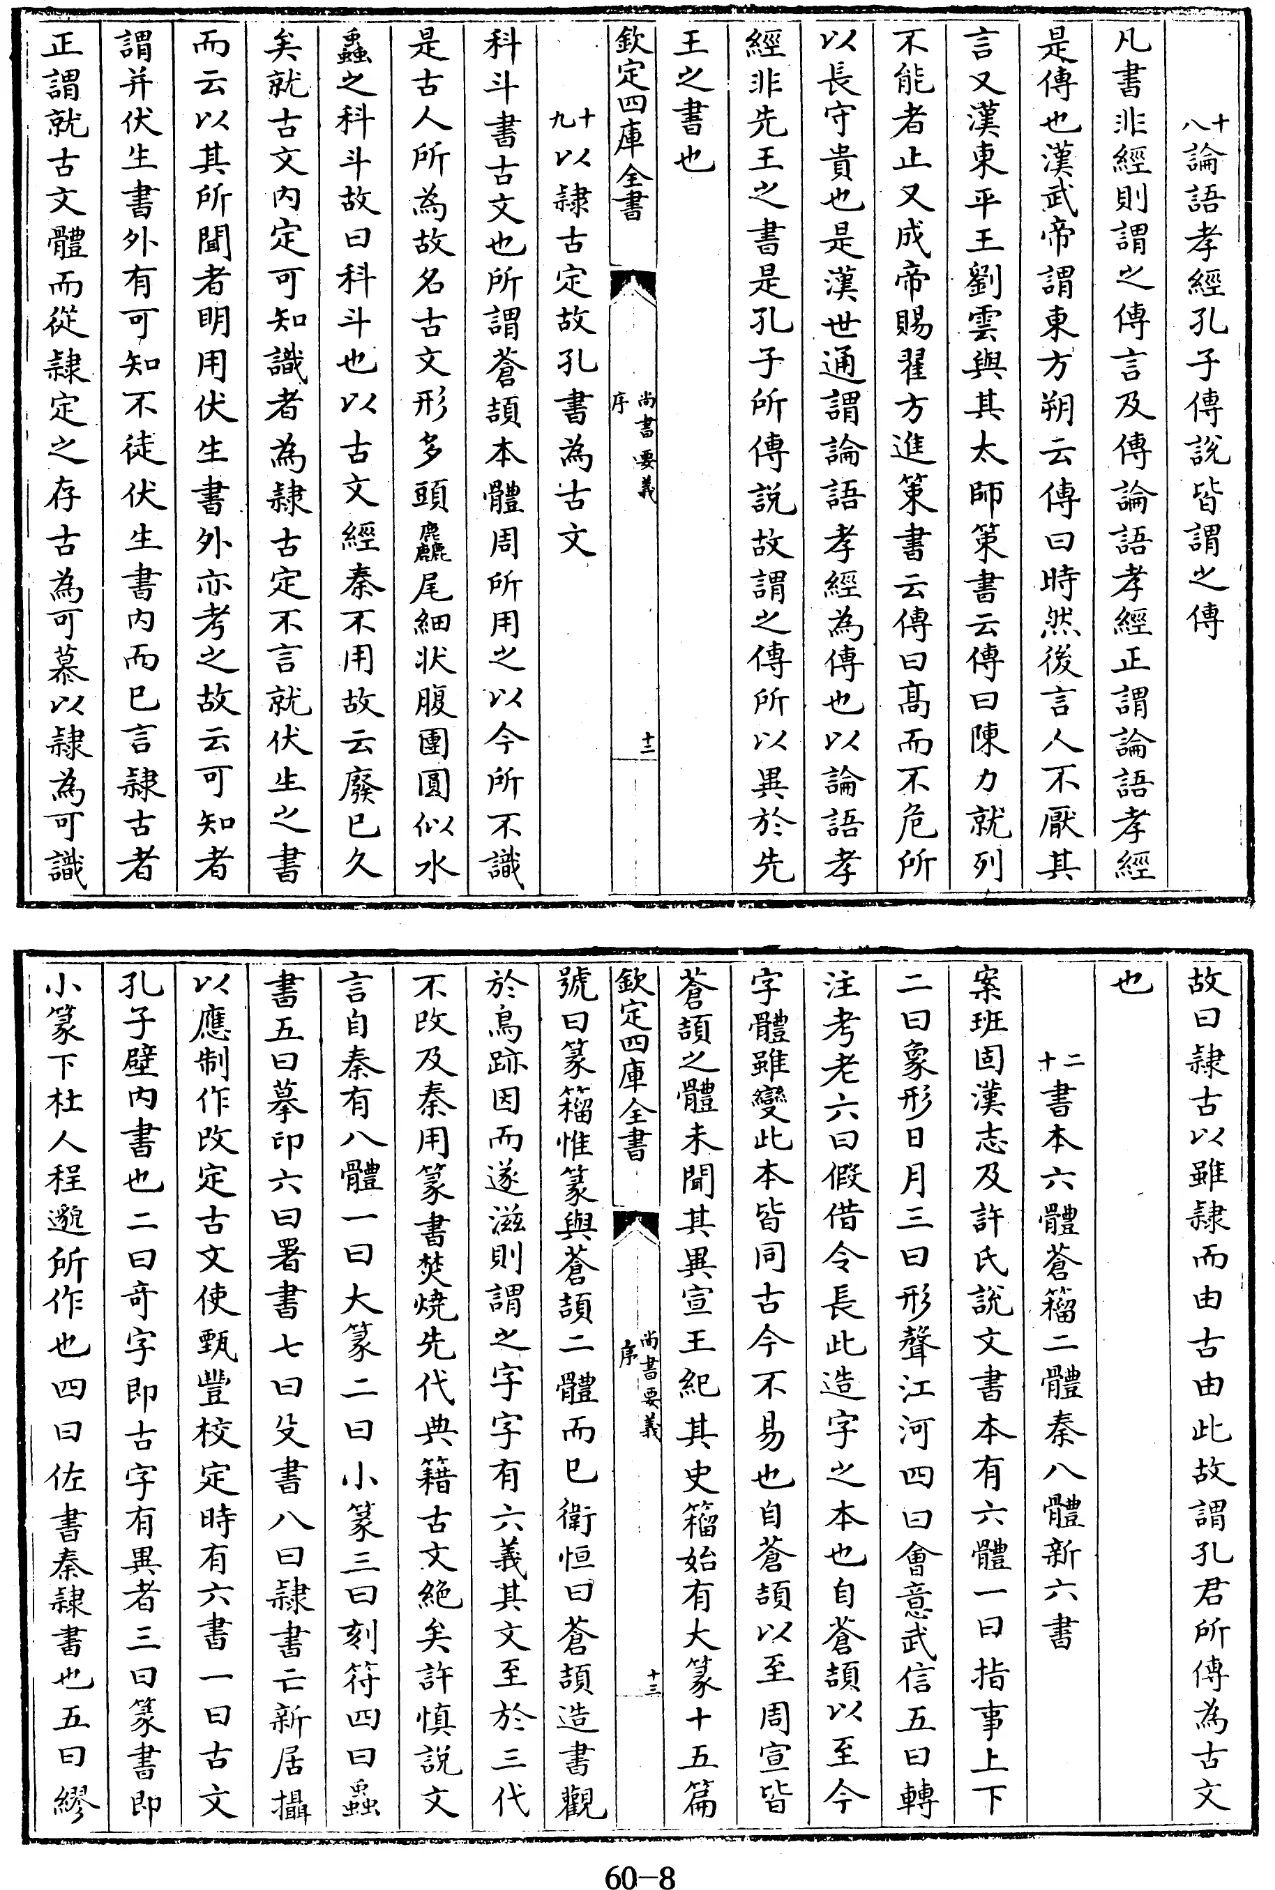 十八論語孝經孔子傳說皆謂之傳
凡書非經則謂之傳言及傳論語孝經正謂論語孝經
是傳也漢武帝謂東方朔云傳曰時然後言人不厭其
言又漢東平王劉雲與其太師策書云傳曰陳力就列
不能者止又成帝賜翟方進策書云傳曰高而不危所
以長守貴也是漢世通謂論語孝經為傳也以論語孝
經非先王之書是孔子所傳說故謂之傳所以異於先
王之書也
欽定四庫全書
尚書要義
序
十二
十九以隸古定故孔書為古文
科斗書古文也所謂蒼頡本體周所用之以今所不識
是古人所為故名古文形多頭麤尾細狀腹團圓似水
蟲之科斗故曰科斗也以古文經秦不用故云廢已久
矣就古文內定可知識者為隸古定不言就伏生之書
而云以其所聞者明用伏生書外亦考之故云可知者
謂并伏生書外有可知不徒伏生書內而已言隸古者
正謂就古文體而從隸定之存古為可慕以隸為可識
故曰隸古以雖隸而由古由此故謂孔君所傳為古文
也
二十書本六體蒼籀二體秦八體新六書
案班固漢志及許氏說文書本有六體一曰指事上下
二曰象形日月三曰形聲江河四曰會意武信五曰轉
注考老六曰假借令長此造字之本也自蒼頡以至今
字體雖變此本皆同古今不易也自蒼頡以至周宣皆
蒼頡之體未聞其異宣王紀其史籀始有大篆十五篇
欽定四庫全書
尚書要義
序
十三
號曰篆籀惟篆與蒼頡二體而已衛恒曰蒼頡造書觀
於鳥跡因而遂滋則謂之字字有六義其文至於三代
不改及秦用篆書焚燒先代典籍古文絕矣許慎說文
言自秦有八體一曰大篆二曰小篆三曰刻符四曰蟲
書五曰摹印六曰署書七曰殳書八曰隸書亡新居攝
以應制作改定古文使甄豐校定時有六書一曰古文
孔子壁內書也二曰奇字即古字有異者三曰篆書即
小篆下杜人程邈所作也四曰佐書秦隸書也五曰繆
60-8